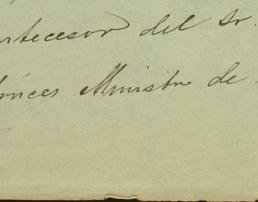 antecesor del Sr.
tónces Ministro de